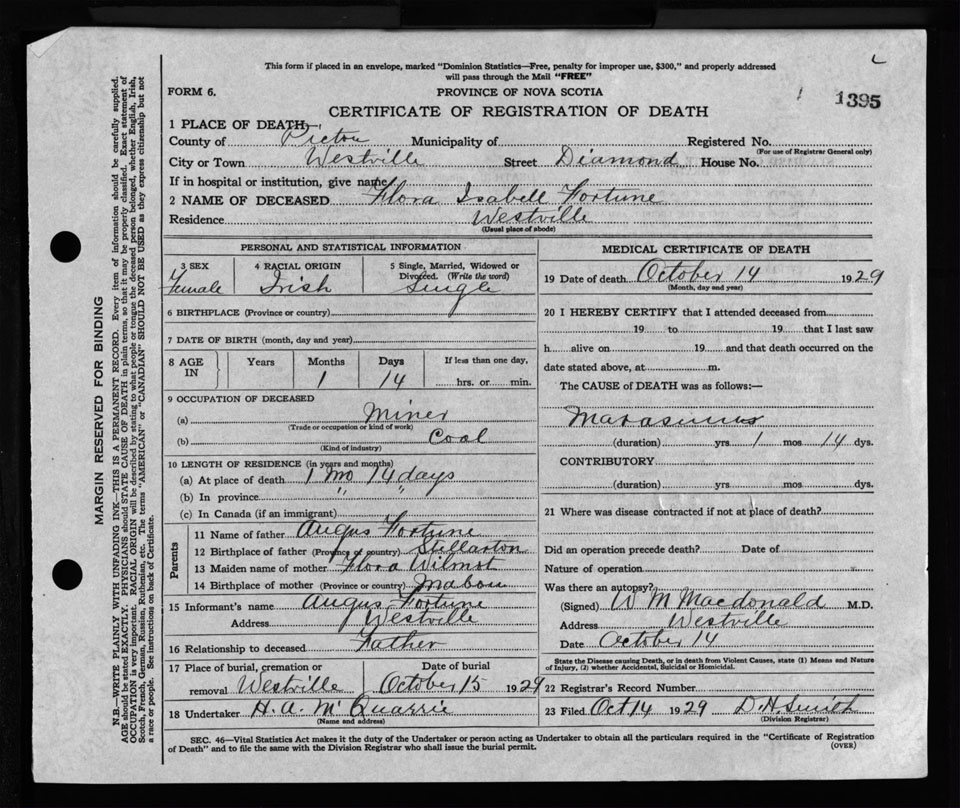 This form if placed in an envelope, marked "Dominion Statistics—Free, penalty for improper use, $300," and properly addressed
will pass through the Mail "FREE"
FORM 6.
PROVINCE OF NOVA SCOTIA
1395
CERTIFICATE OF REGISTRATION OF DEATH
1 PLACE OF DEATH—
County of Pictou Municipality of Registered No.
(For use of Registrar General only)
City or Town Westville Street Diamond House No.
If in hospital or institution, give name
2 NAME OF DECEASED Flora Isabell Fortune
Residence Westville
(Usual place of abode)
PERSONAL AND STATISTICAL INFORMATION
3 SEX 4 RACIAL ORIGIN 5 Single, Married, Widowed or
Divorced. (Write the word)
Female Irish Single
6 BIRTHPLACE (Province or country)
7 DATE OF BIRTH (month, day and year)
8 AGE IN Years Months Days If less than one day,
1 14 hrs. or min.
9 OCCUPATION OF DECEASED
(a) Miner
(Trade or occupation or kind of work)
(b) Coal
(Kind of industry)
10 LENGTH OF RESIDENCE (in years and months)
(a) At place of death 1 mo 14 days
(b) In province " "
(c) In Canada (if an immigrant)
Parents
11 Name of father Angus Fortune
12 Birthplace of father (Province or country) Stellarton
13 Maiden name of mother Flora Wilmot
14 Birthplace of mother (Province or country) Mabou
15 Informant's name Angus Fortune
Address Westville
16 Relationship to deceased Father
17 Place of burial, cremation or Date of burial
removal Westville October 15 1929
18 Undertaker H. A. McQuarrie
(Name and address)
MEDICAL CERTIFICATE OF DEATH
19 Date of death October 14 1929
(Month, day and year)
20 I HEREBY CERTIFY that I attended deceased from
19 to 19 that I last saw
h alive on 19 and that death occurred on the
date stated above, at m.
The CAUSE of DEATH was as follows:—
Marasmus
(duration) yrs 1 mos 14 dys.
CONTRIBUTORY
(duration) yrs. mos. dys.
21 Where was disease contracted if not at place of death?
Did an operation precede death? Date of
Nature of operation
Was there an autopsy?
(Signed) W M Macdonald M.D.
Address Westville
Date October 14
State the Disease causing Death, or in death from Violent Causes, state (1) Means and Nature
of Injury, (2) whether Accidental, Suicidal or Homicidal.
22 Registrar's Record Number
23 Filed Oct 14 1929 D. H. Smith
(Division Registrar)
SEC. 46—Vital Statistics Act makes it the duty of the Undertaker or person acting as Undertaker to obtain all the particulars required in the "Certificate of Registration
of Death" and to file the same with the Division Registrar who shall issue the burial permit.
(OVER)
MARGIN RESERVED FOR BINDING
N.B.—WRITE PLAINLY WITH UNFADING INK—THIS IS A PERMANENT RECORD. Every item of information should be carefully supplied.
AGE should be stated EXACTLY. PHYSICIANS should STATE CAUSE OF DEATH in plain terms, so that it may be properly classified. Exact statement of
OCCUPATION is very important. RACIAL ORIGIN will be described by stating to what people or tongue the deceased person belonged, whether English, Irish,
Scotch, French, German, Russian, Ruthenian, etc. The terms "AMERICAN" or "CANADIAN" SHOULD NOT BE USED as they express citizenship but not
a race or people. See instructions on back of Certificate.